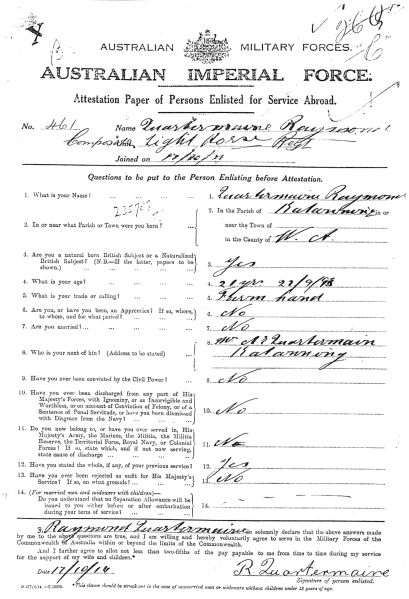 AUSTRALIAN MILITARY FORCES.
AUSTRALIAN IMPERIAL FORCE.
Attestation Paper of Persons Enlisted for Service Abroad.
No. 461 Name Quartermaine Raymond
Unit Light Horse Regt
Joined on
Questions to be put to the Person Enlisting before Attestation.
1. What is your Name? ... 1. Quartermaine Raymond
2. In or near what Parish or Town were you born? ... 2. In the Parish of Katanning in or
near the Town of
in the County of W. A.
3. Are you a natural born British Subject or a Naturalized
British Subject? (N.B.—If the latter, papers to be
shown.) 3. Yes
4. What is your age? ... 4. 21 yrs
5. What is your trade or calling? ... 5. Farm hand
6. Are you, or have you been, an Apprentice? If so, where,
to whom, and for what period? 6. No
7. Are you married? ... 7. No
8. Who is your next of kin? (Address to be stated) 8. Mr Quartermain
Katanning
9. Have you ever been convicted by the Civil Power? 9. No
10. Have you ever been discharged from any part of His
Majesty's Forces, with Ignominy, or as Incorrigible and
Worthless, or on account of Conviction of Felony, or of a
Sentence of Penal Servitude, or have you been dismissed
with Disgrace from the Navy? 10. No
11. Do you now belong to, or have you ever served in, His
Majesty's Army, the Marines, the Militia, the Militia
Reserve, the Territorial Force, Royal Navy, or Colonial
Forces? If so, state which, and if not now serving,
state cause of discharge 11. No
12. Have you stated the whole, if any, of your previous service? 12. Yes
13. Have you ever been rejected as unfit for His Majesty's
Service? If so, on what grounds? 13. No
14. (For married men and widowers with children)—
Do you understand that no Separation Allowance will be
issued to you either before or after embarkation
during your term of service? 14.
I, Raymond Quartermaine do solemnly declare that the above answers made
by me to the above questions are true, and I am willing and hereby voluntarily agree to serve in the Military Forces of the
Commonwealth of Australia within or beyond the limits of the Commonwealth.
And I further agree to allot not less than two-fifths of the pay payable to me from time to time during my service
for the support of my wife and children.*
Date 12/10/14 R Quartermaine
Signature of person enlisted.
*This clause should be struck out in the case of unmarried men or widowers without children under 18 years of age.